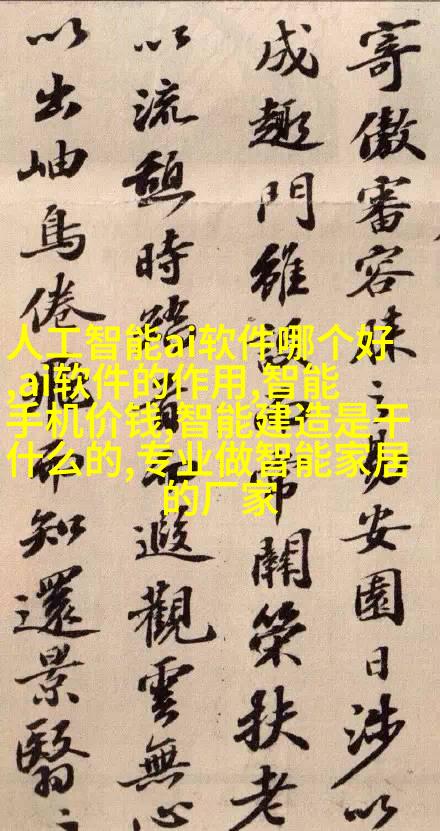 寄傲審容膝之易安園日涉以
成趣門雖設而常關策扶老
以流憩時矯首而遐觀雲無心
以出岫鳥倦飛而知還景翳
人工智能ai软件哪个好
,ai软件的作用,智能
手机价钱,智能建造是干
什么的,专业做智能家居
的厂家